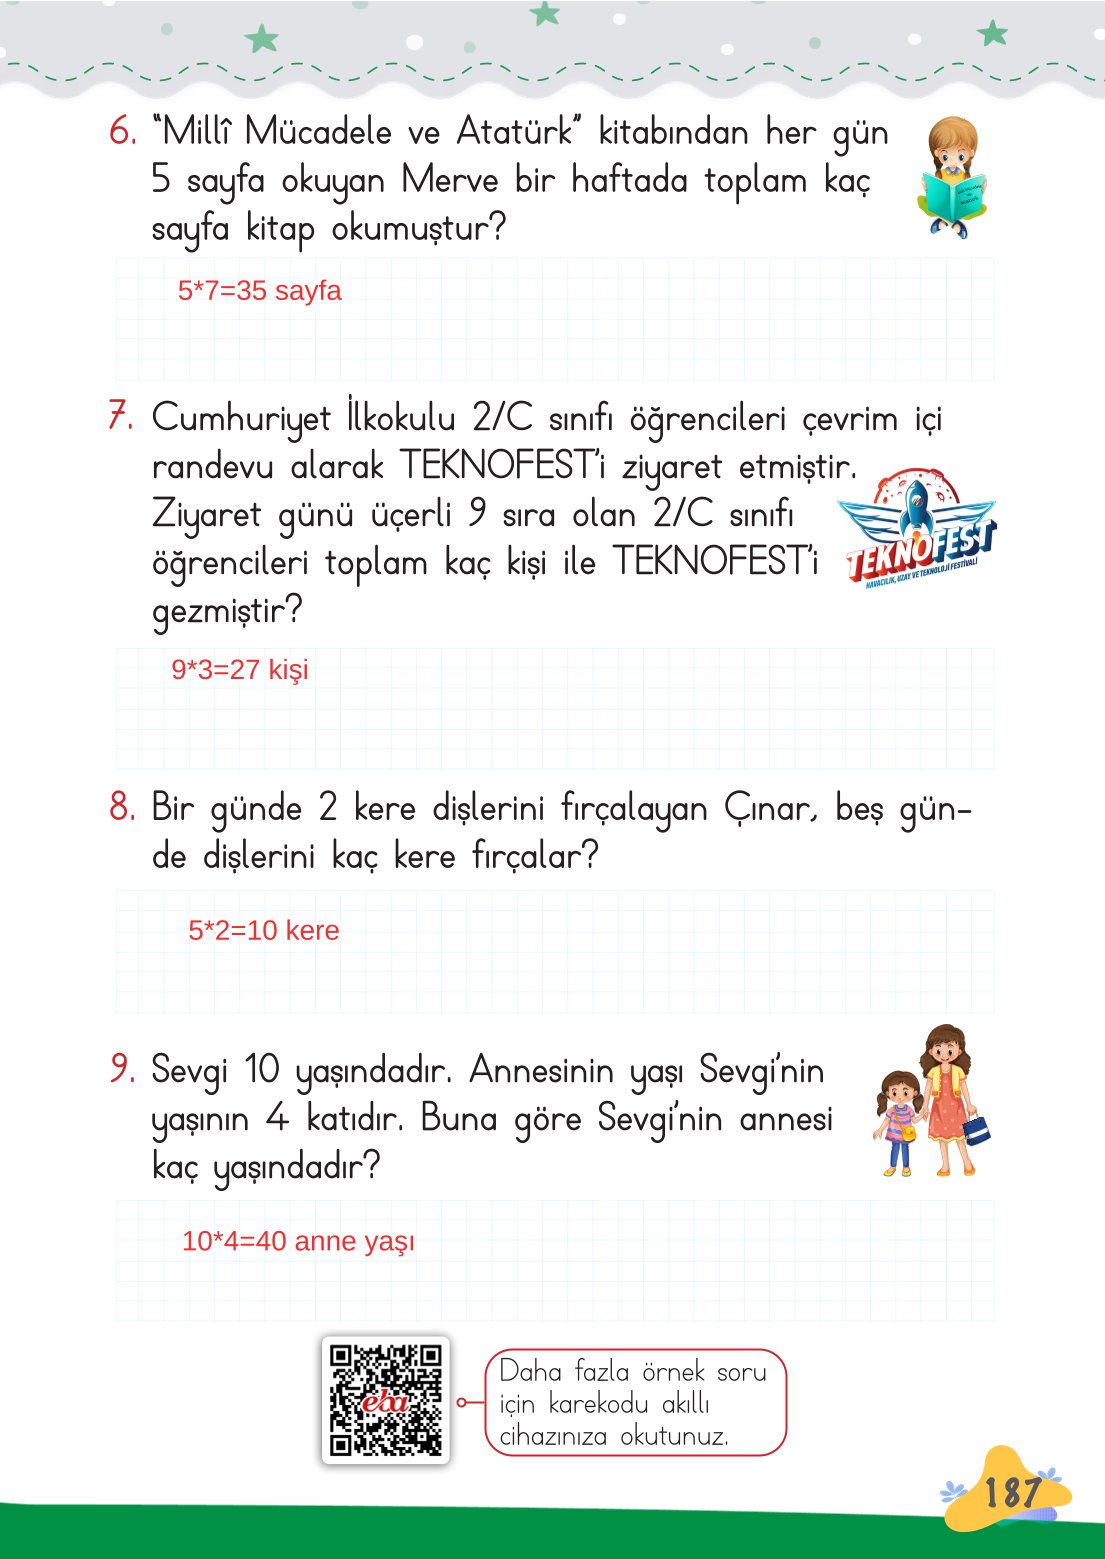 6. “Millî Mücadele ve Atatürk” kitabından her gün
5 sayfa okuyan Merve bir haftada toplam kaç
sayfa kitap okumuştur?
5*7=35 sayfa
7. Cumhuriyet İlkokulu 2/C sınıfı öğrencileri çevrim içi
randevu alarak TEKNOFEST’i ziyaret etmiştir.
Ziyaret günü üçerli 9 sıra olan 2/C sınıfı
öğrencileri toplam kaç kişi ile TEKNOFEST’i
gezmiştir?
TEKNOFEST
HAVACILIK, UZAY VE TEKNOLOJİ FESTİVALİ
9*3=27 kişi
8. Bir günde 2 kere dişlerini fırçalayan Çınar, beş gün-
de dişlerini kaç kere fırçalar?
5*2=10 kere
9. Sevgi 10 yaşındadır. Annesinin yaşı Sevgi’nin
yaşının 4 katıdır. Buna göre Sevgi’nin annesi
kaç yaşındadır?
10*4=40 anne yaşı
eba
Daha fazla örnek soru
için karekodu akıllı
cihazınıza okutunuz.
187